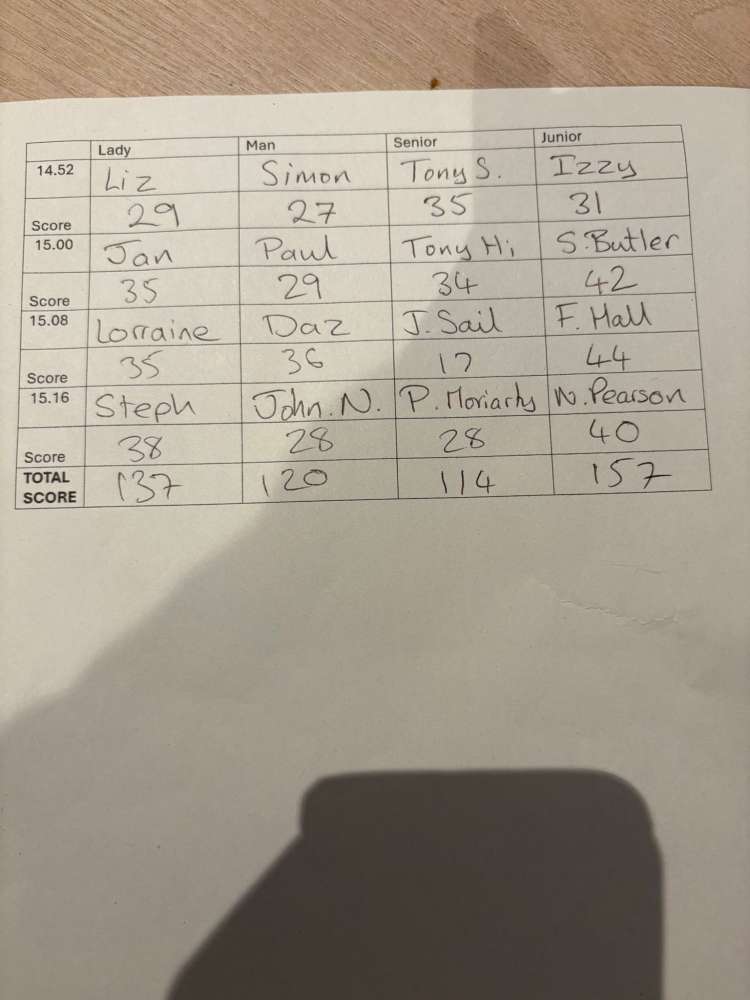 Lady Man Senior Junior
14.52 Liz Simon Tony S. Izzy
Score 29 27 35 31
15.00 Jan Paul Tony Hi S.Butler
Score 35 29 34 42
15.08 Lorraine Daz J. Sail F. Hall
Score 35 36 17 44
15.16 Steph John.N. P. Moriarty N. Pearson
Score 38 28 28 40
TOTAL SCORE 137 120 114 157